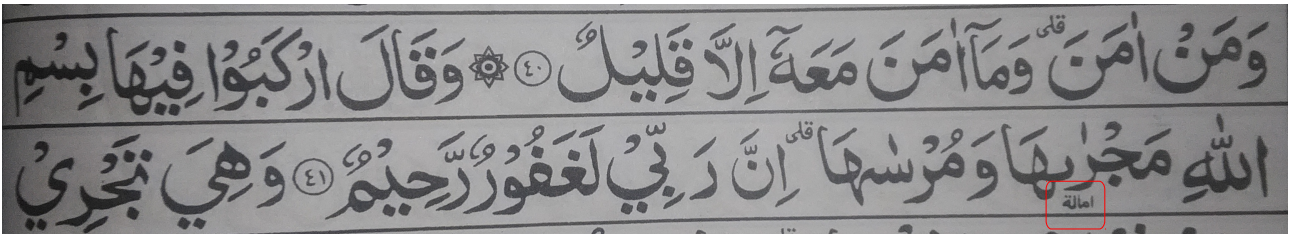 وَمَنْ اٰمَنَ ۗ وَمَآ اٰمَنَ مَعَهٗٓ اِلَّا قَلِيْلٌ ٤٠ ۞ وَقَالَ ارْكَبُوْا فِيْهَا بِسْمِ
اللّٰهِ مَجْرٰ۪ىهَا وَمُرْسٰىهَا ۗ اِنَّ رَبِّيْ لَغَفُوْرٌ رَّحِيْمٌ ٤١ وَهِيَ تَجْرِيْ
امالة